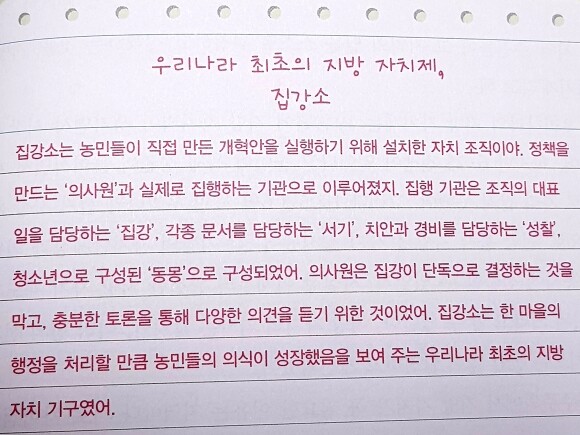 우리나라 최초의 지방 자치제,
집강소
집강소는 농민들이 직접 만든 개혁안을 실행하기 위해 설치한 자치 조직이야. 정책을
만드는 ‘의사원’과 실제로 집행하는 기관으로 이루어졌지. 집행 기관은 조직의 대표
일을 담당하는 ‘집강’, 각종 문서를 담당하는 ‘서기’, 치안과 경비를 담당하는 ‘성찰’,
청소년으로 구성된 ‘동몽’으로 구성되었어. 의사원은 집강이 단독으로 결정하는 것을
막고, 충분한 토론을 통해 다양한 의견을 듣기 위한 것이었어. 집강소는 한 마을의
행정을 처리할 만큼 농민들의 의식이 성장했음을 보여 주는 우리나라 최초의 지방
자치 기구였어.